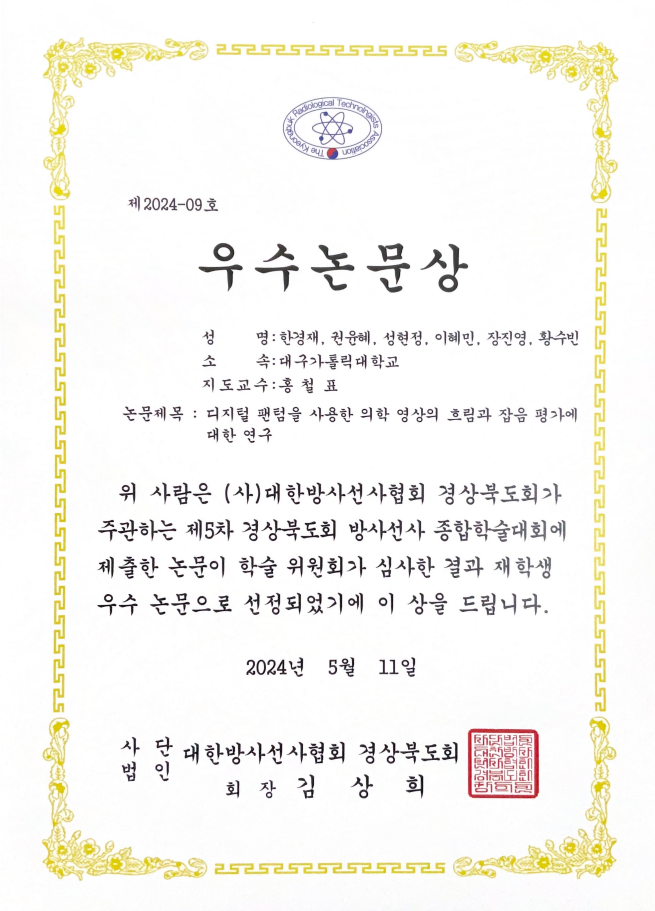 The Kyeongbuk Radiological Technologists Association
제2024-09호
우수논문상
성 명:한경재, 권윤혜, 성현정, 이혜민, 장진영, 황수빈
소 속:대구가톨릭대학교
지도교수:홍 철 표
논문제목 : 디지털 팬텀을 사용한 의학 영상의 흐림과 잡음 평가에
대한 연구
위 사람은 (사)대한방사선사협회 경상북도회가
주관하는 제5차 경상북도회 방사선사 종합학술대회에
제출한 논문이 학술 위원회가 심사한 결과 재학생
우수 논문으로 선정되었기에 이 상을 드립니다.
2024년 5월 11일
사단법인 대한방사선사협회 경상북도회
회 장 김 상 희